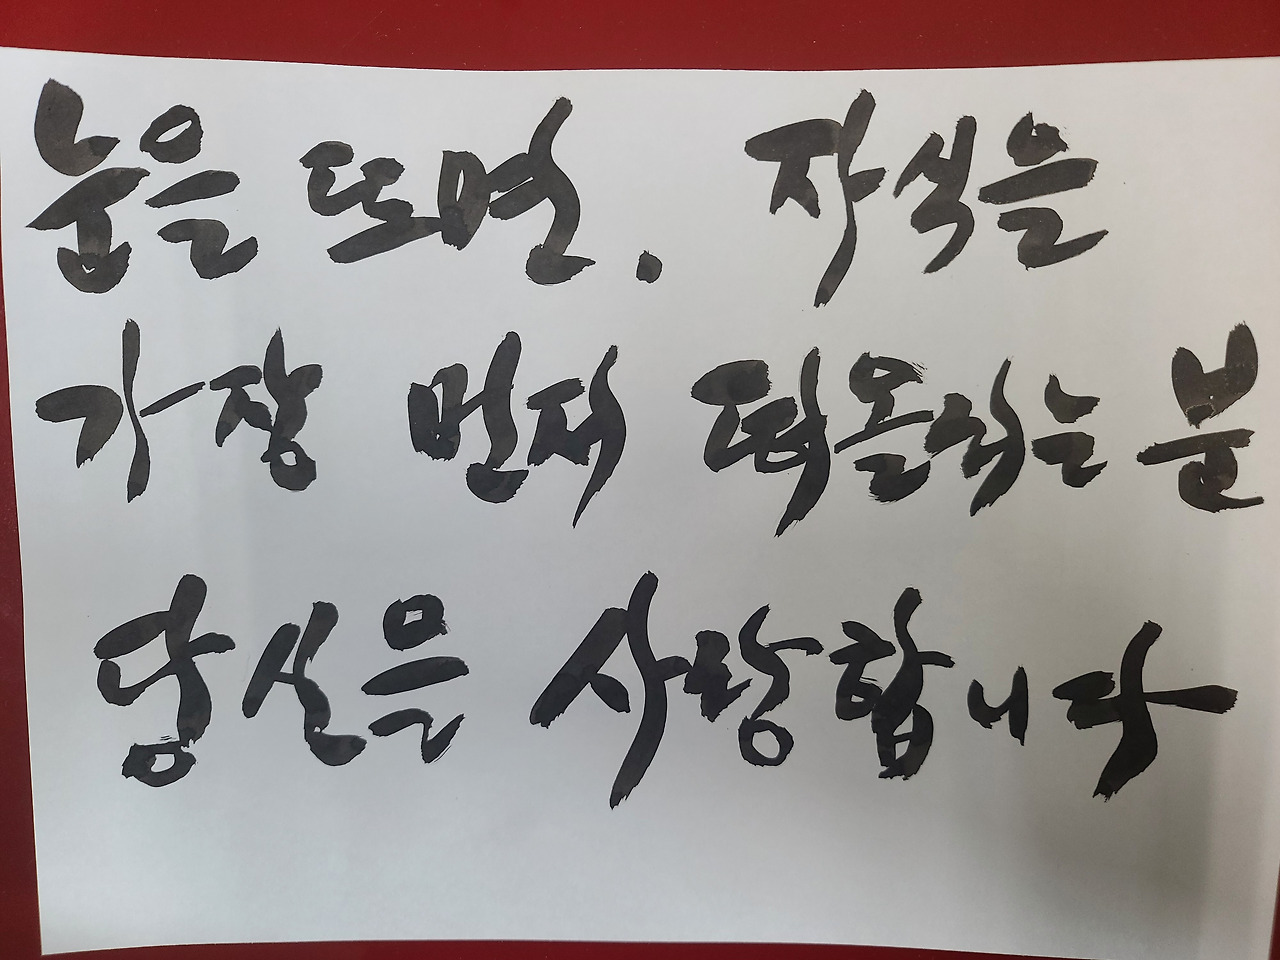 눈을 뜨면. 자식을
가장 먼저 떠올리는 분
당신은 사랑합니다